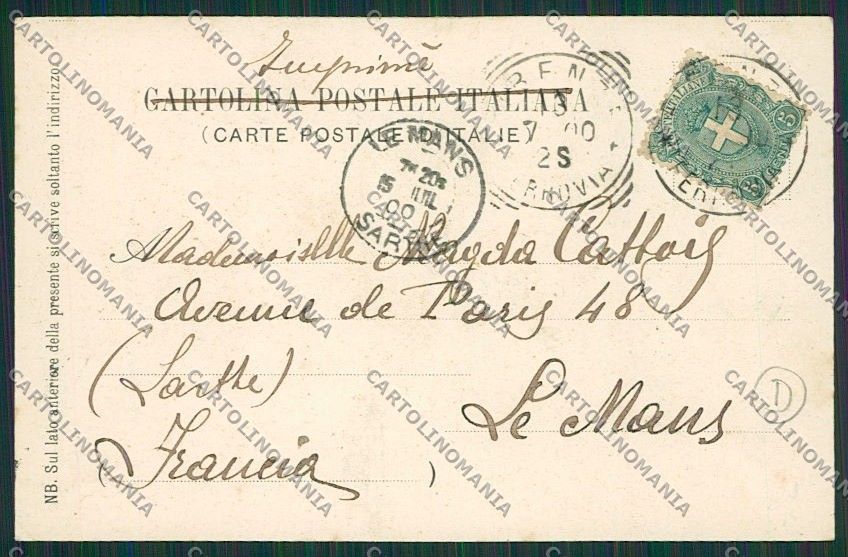 Imprimé
CARTOLINA POSTALE ITALIANA
(CARTE POSTALE D'ITALIE)
LE MANS
7E 20S
15 JUIL
00
SARTHE
7 00
2S
FERROVIA
Mademoiselle Magda Cattois
Avenue de Paris 48
(Sarthe)
Le Mans
(Francia)
D
NB. Sul lato anteriore della presente si scrive soltanto l'indirizzo.
CARTOLINOMANIA